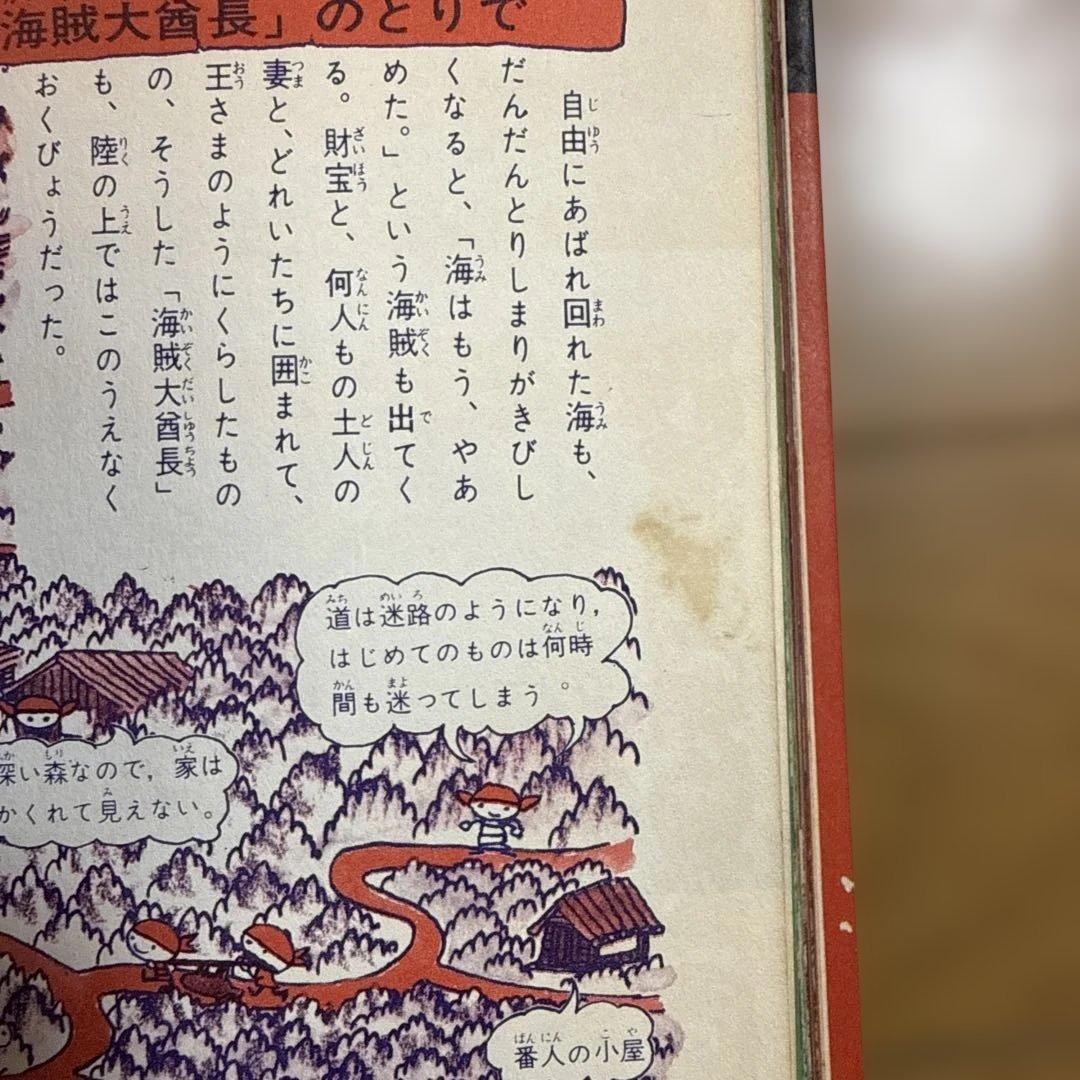 海賊大酋長」のとりで
自由にあばれ回れた海も、
だんだんとりしまりがきびし
くなると、「海はもう、やあ
めた。」という海賊も出てく
る。財宝と、何人もの土人の
妻と、どれいたちに囲まれて、
王さまのようにくらしたもの
の、そうした「海賊大酋長」
も、陸の上ではこのうえなく
おくびょうだった。
道は迷路のようになり,
はじめてのものは何時
間も迷ってしまう。
深い森なので,家は
かくれて見えない。
番人の小屋